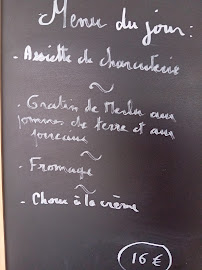 Menu du jour :
- Assiette de charcuterie
~
- Gratin de Merlu aux
pommes de terre et aux
poireaux
~
- Fromage
~
- Choux à la crème
16 €